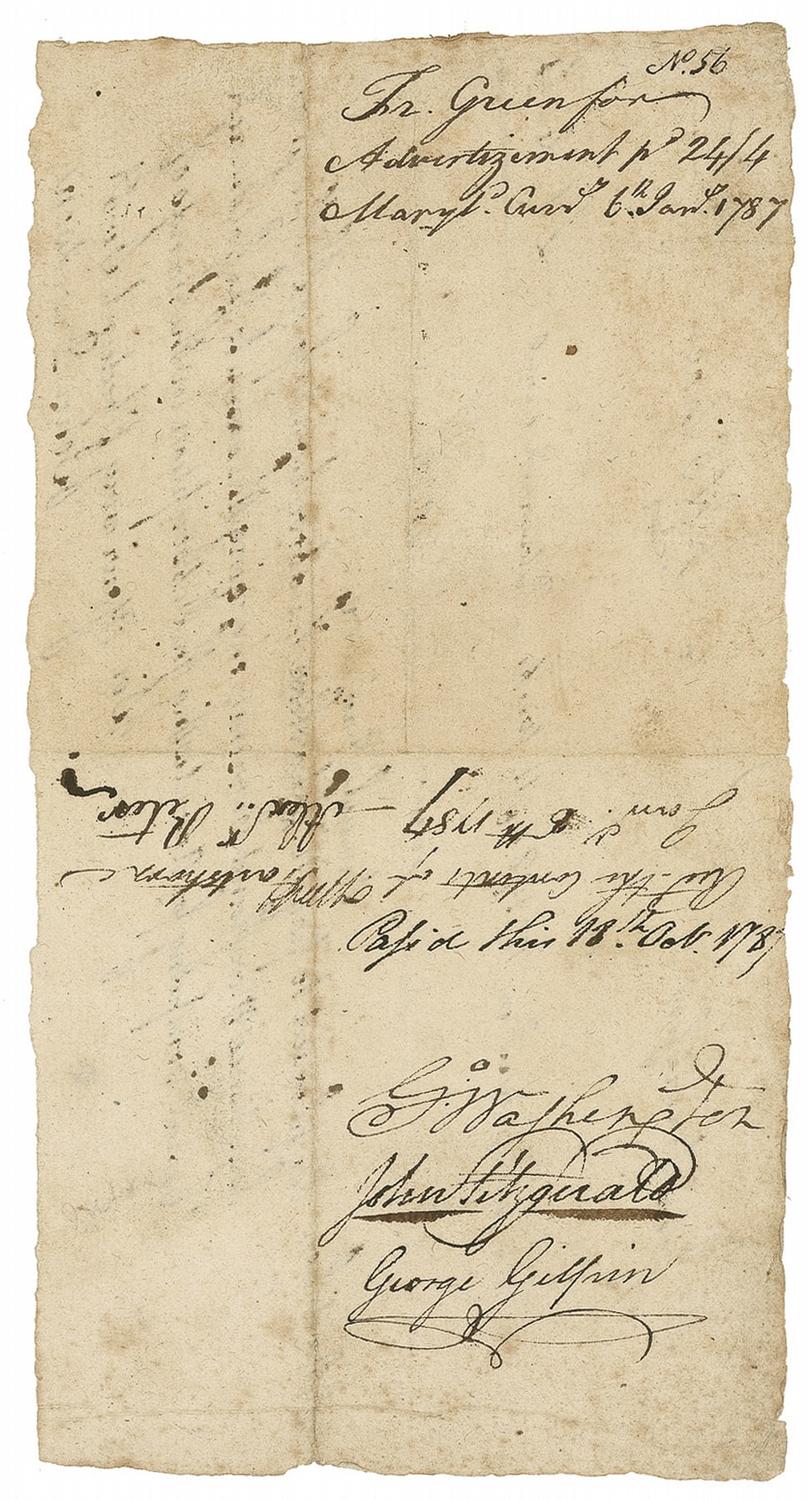 No. 56
Fr. Green for
Advertizement pd 24/4
Maryld. Curcy 6th Jany. 1787
Recd. the Contents of
Jany. 6th 1787 — Alexr.
Pass'd this 18th. Oct. 1787
Go: Washington
John Fitzgerald
George Gilpin